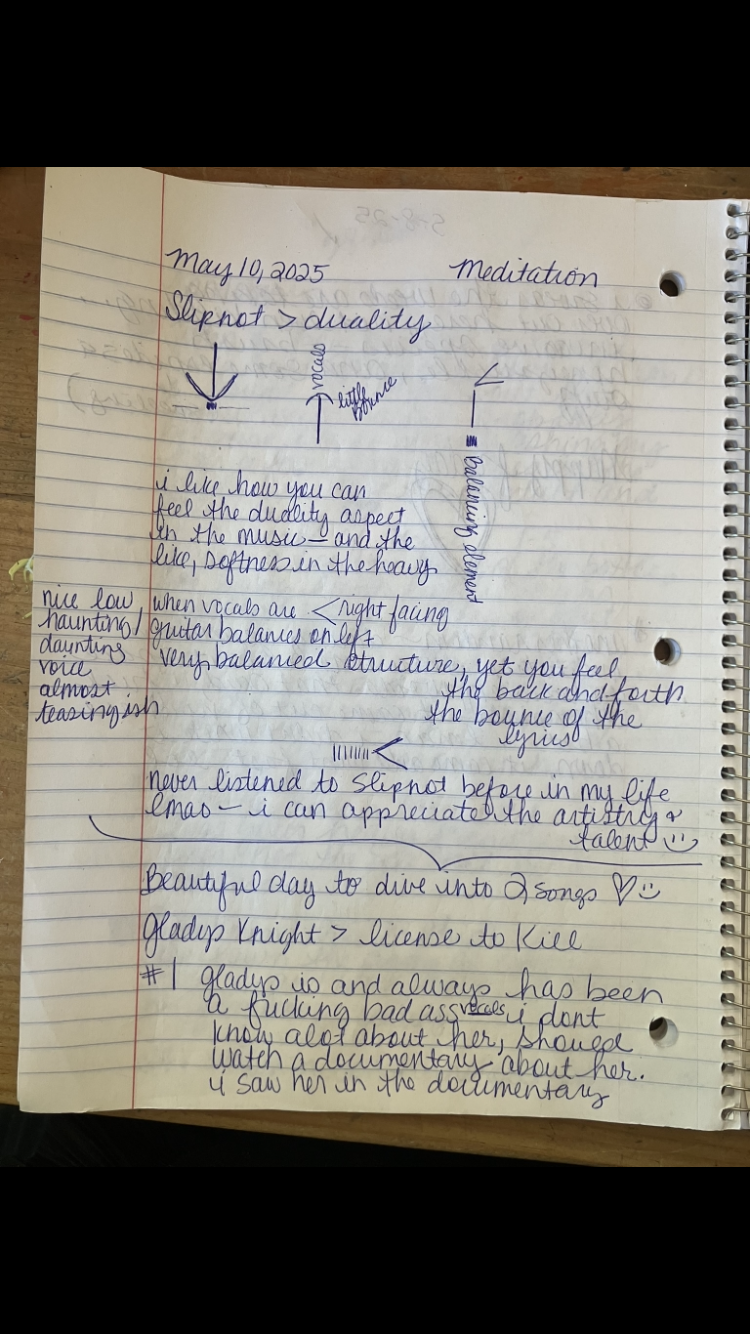 May 10, 2025 Meditation
Slipnot > duality
vocals
little bounce
balancing element
i like how you can
feel the duality aspect
in the music — and the
like, softness in the heavy
nice low
haunting/
daunting
voice
almost
teasingish
when vocals are < right facing
guitar balances on left
very balanced structure, yet you feel
the back and forth
the bounce of the
lyrics
never listened to Slipnot before in my life
lmao — i can appreciate the artistry &
talent
Beautiful day to dive into 2 songs ♡
Gladys Knight > license to Kill
#1 gladys is and always has been
a fucking bad ass vocals i dont
know alot about her, should
watch a documentary about her.
i saw her in the documentary